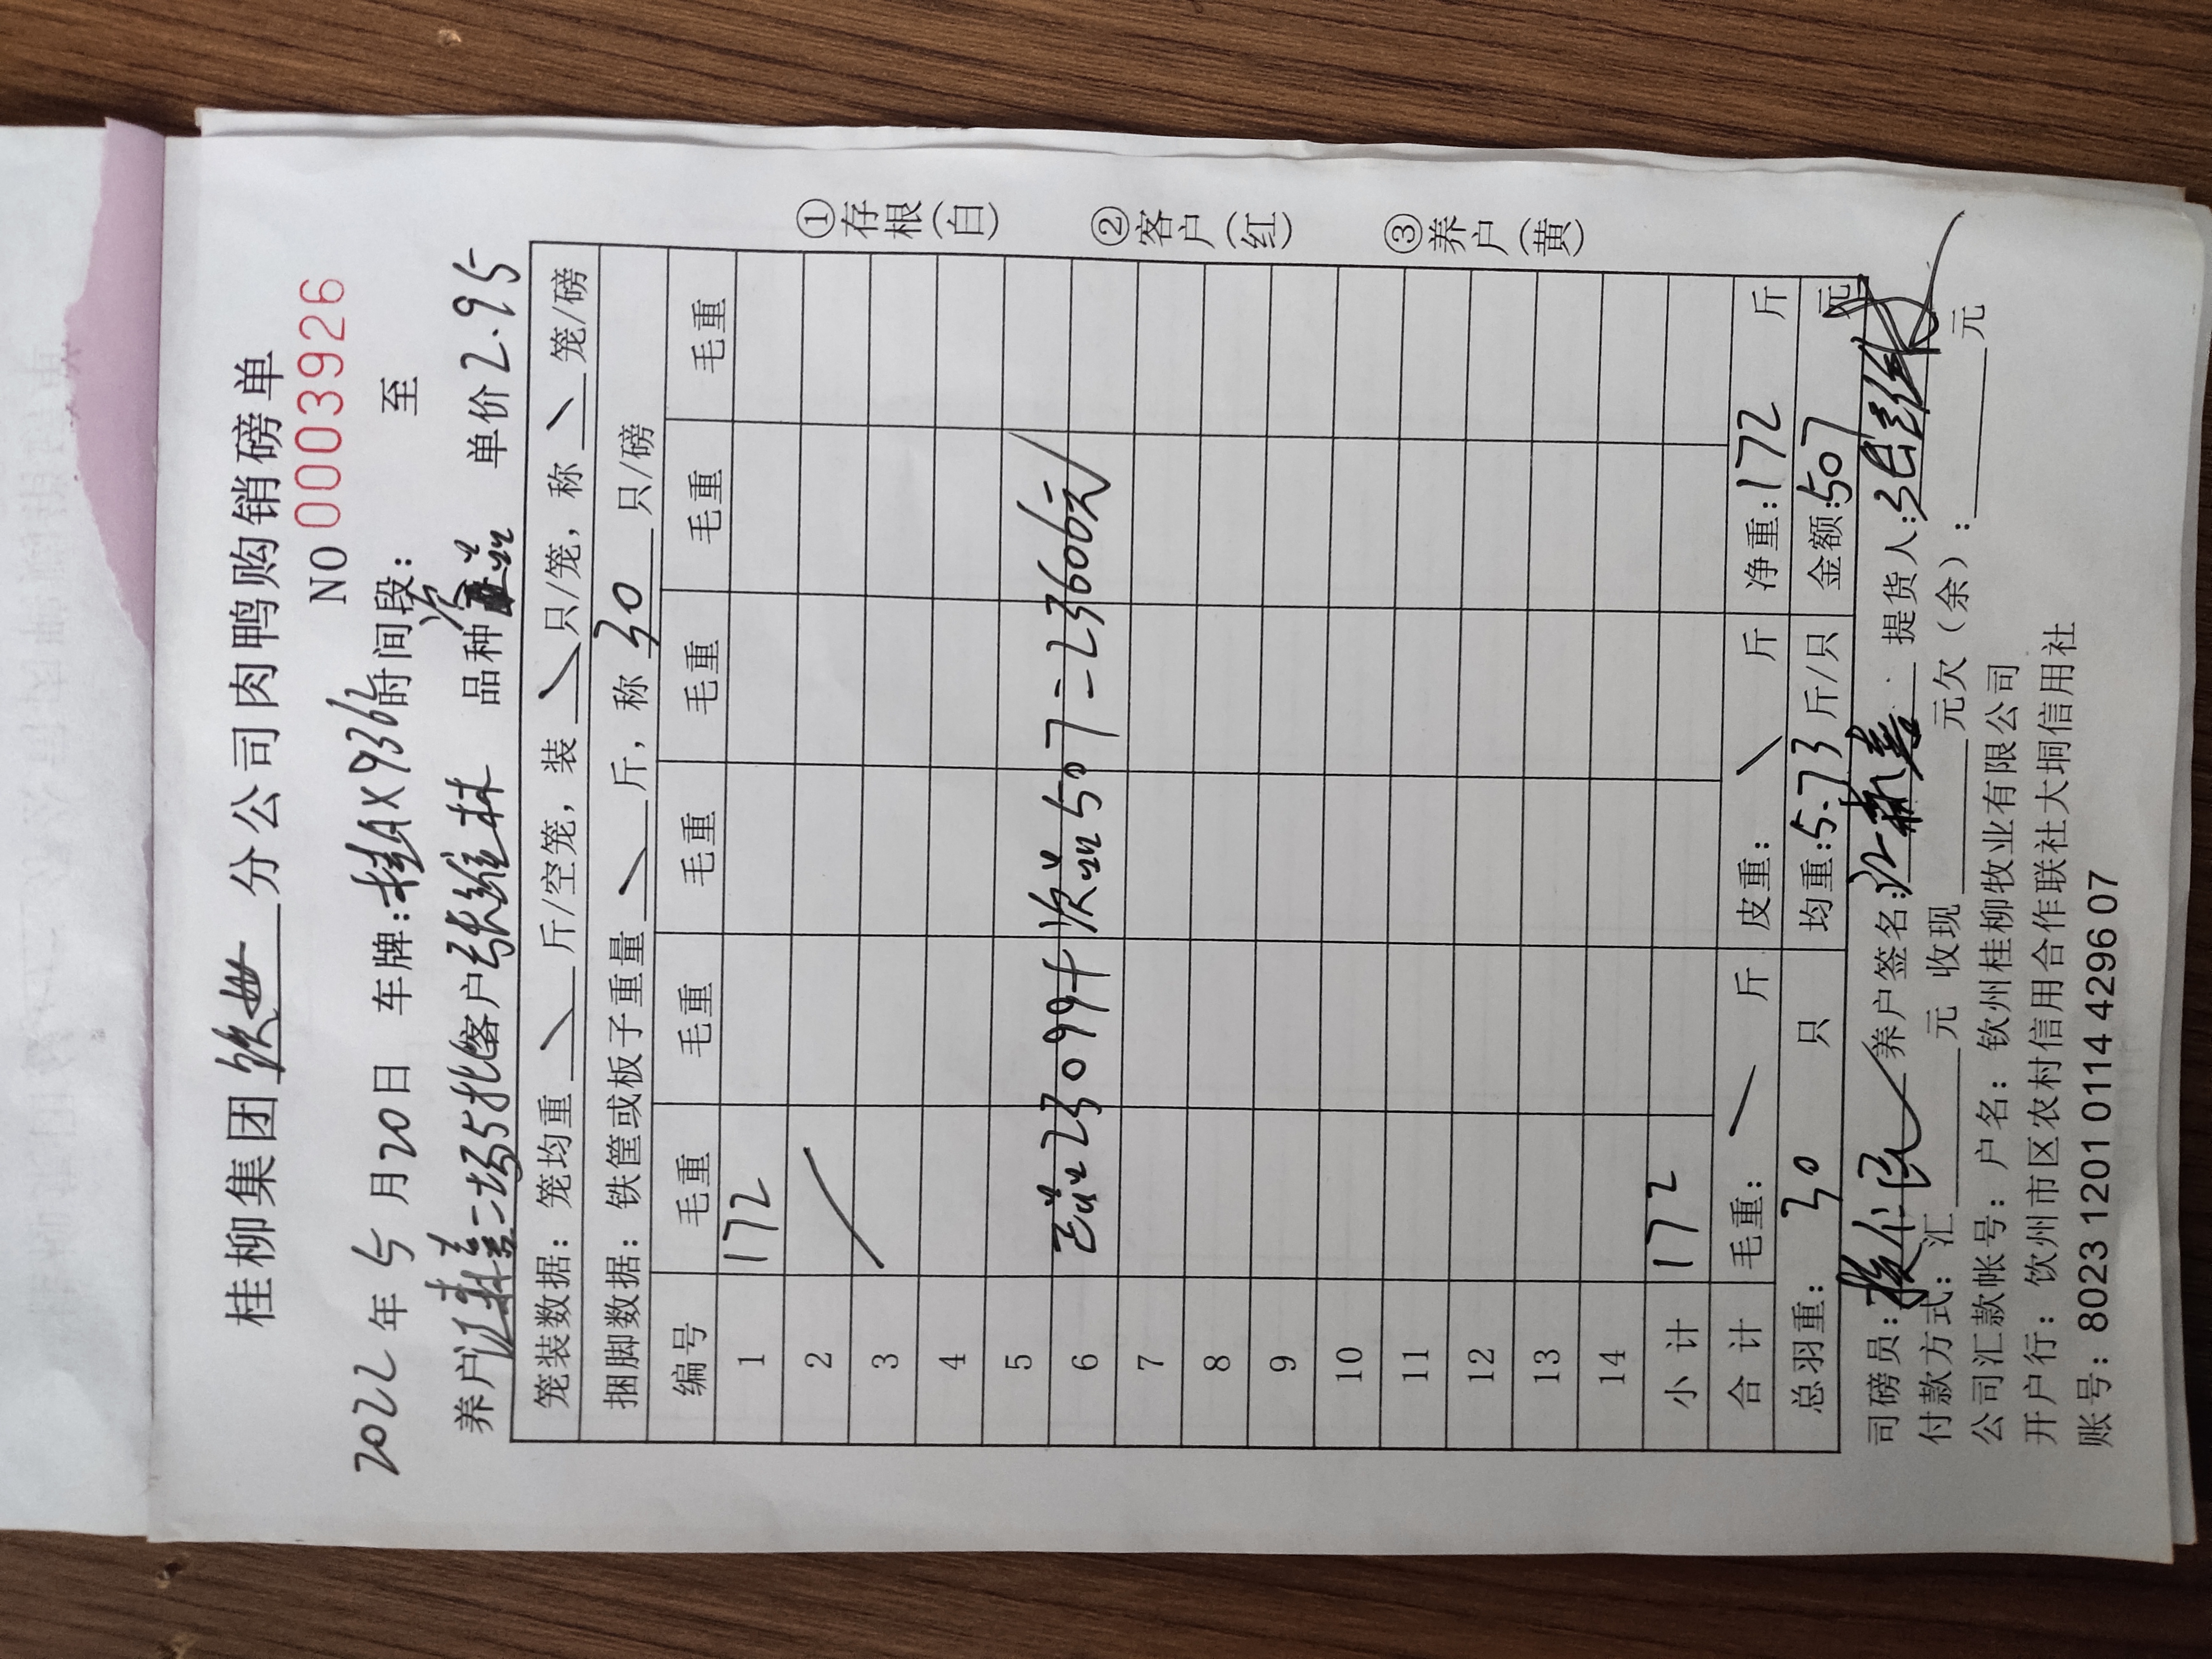 桂柳集团 钦州 分公司肉鸭购销磅单
NO 0003926
2022年5月20日 车牌:桂AX936 时间段: 至
养户 江燕善二场5批 客户 张维林 品种 次品 单价 2.95
笼装数据:笼均重 \ 斤/空笼,装 \ 只/笼,称 \ 笼/磅
捆脚数据:铁筐或板子重量 \ 斤,称 30 只/磅
编号 毛重 毛重 毛重 毛重 毛重 毛重
1 172
2
3
4
5
6 正品23099+次品507=23606元
7
8
9
10
11
12
13
14
小计 172
合计 毛重: / 斤 皮重: \ 斤 净重:172 斤
总羽重: 30 只 均重:5.73 斤/只 金额:507 元
司磅员: 养户签名: 提货人:张维林
付款方式:汇 元 收现 元欠(余): 元
公司汇款帐号:户名:钦州桂柳牧业有限公司
开户行:钦州市区农村信用合作联社大垌信用社
账号:8023 1201 0114 4296 07
①存根(白)
②客户(红)
③养户(黄)